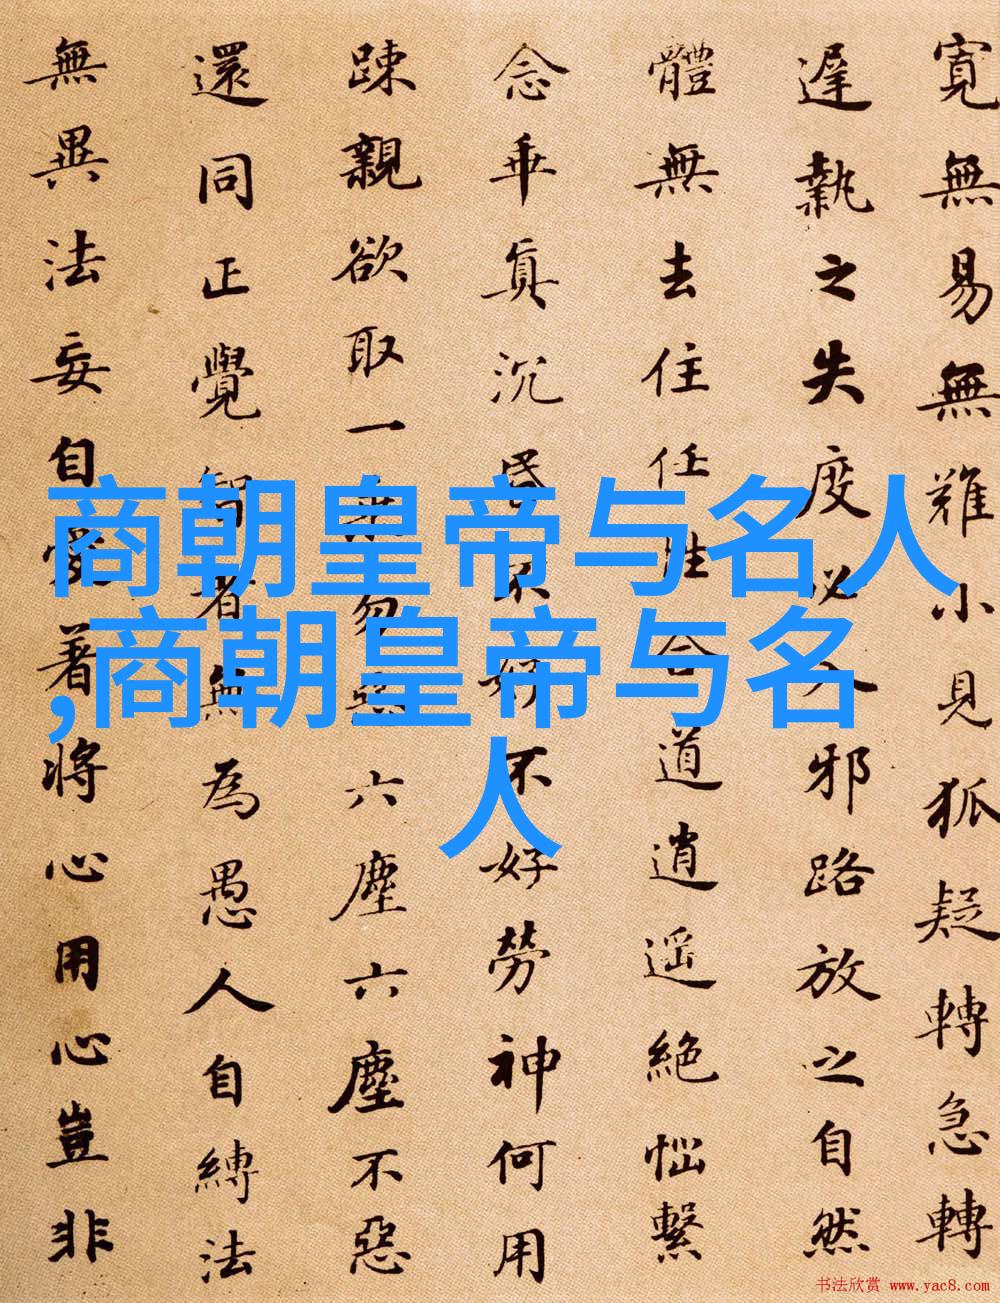 寬無易無難小見狐疑轉急轉
遲執之失度必入邪路放之自然
體無去住任性合道逍遥絕惱繫
念乖真沉昏不好不好勞神何用
踈親欲取一乘勿惡六塵六塵不惡
還同正覺智者無為愚人自縛法
無異法妄自愛著將心用心豈非
商朝皇帝与名人
,商朝皇帝与名
人
书法欣赏 www.yac8.com